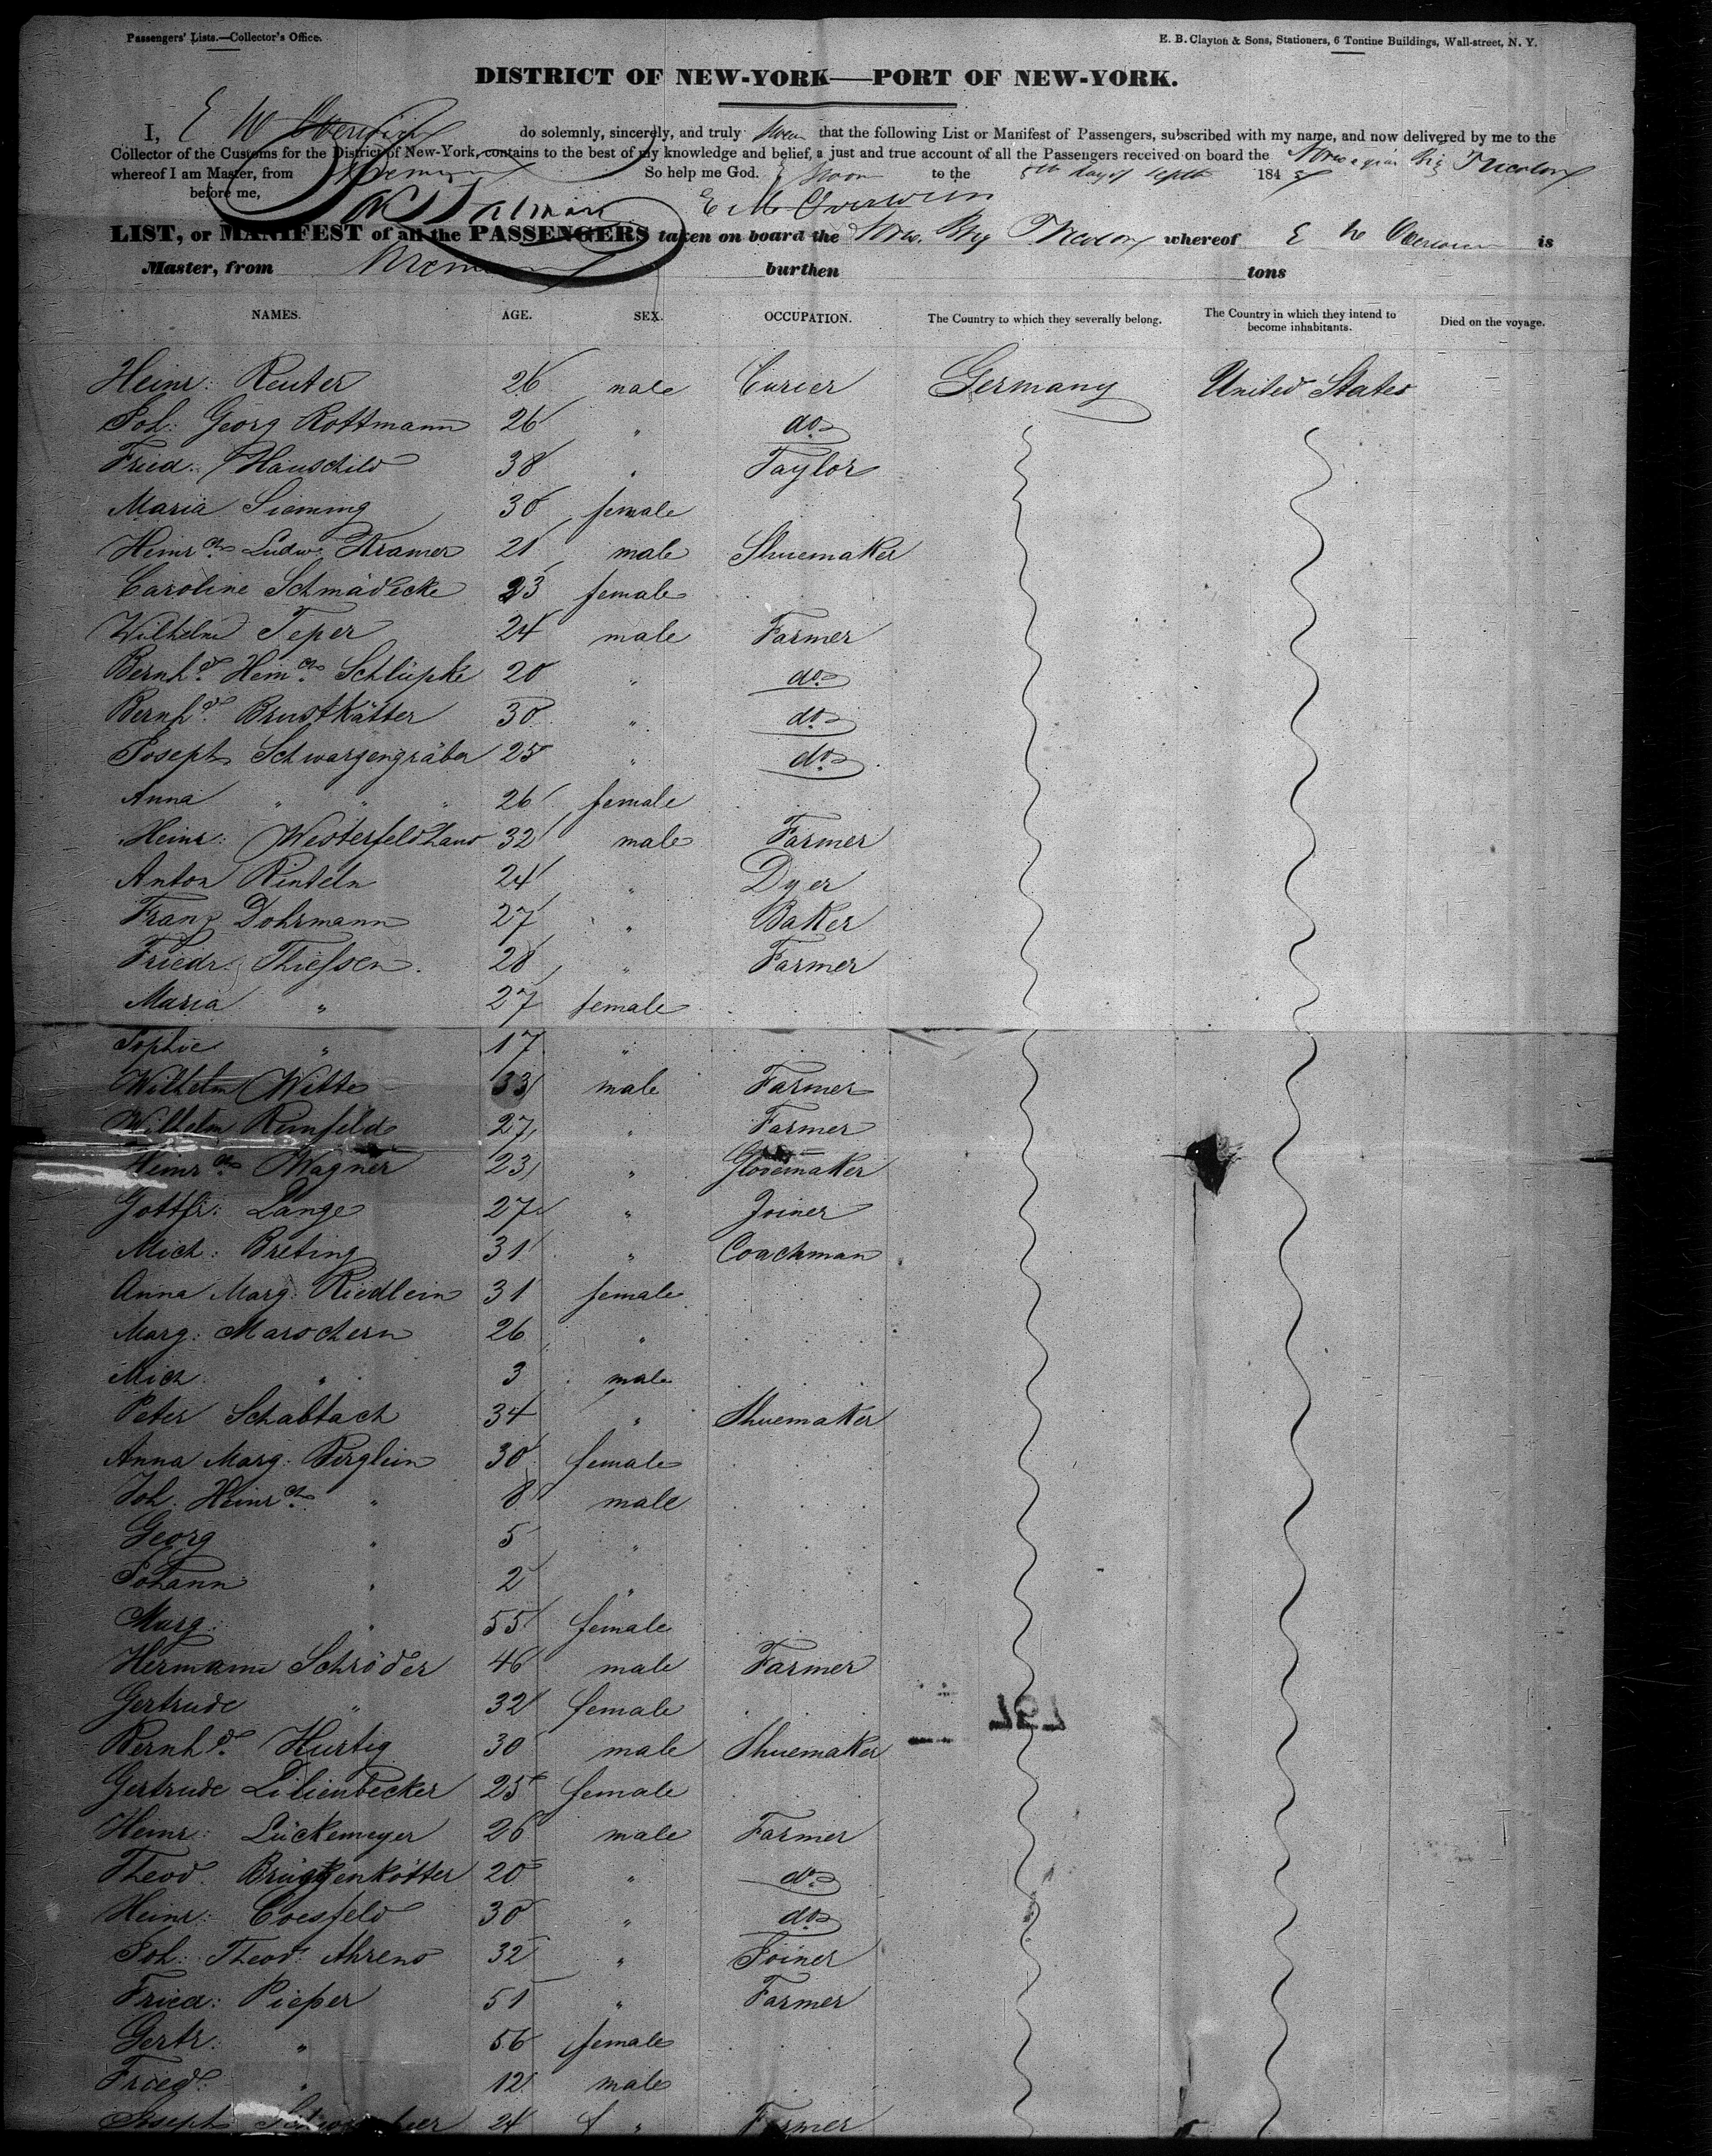 Passengers' Lists.—Collector's Office.
E. B. Clayton & Sons, Stationers, 6 Tontine Buildings, Wall-street, N. Y.
DISTRICT OF NEW-YORK—PORT OF NEW-YORK.
I, E W do solemnly, sincerely, and truly swear that the following List or Manifest of Passengers, subscribed with my name, and now delivered by me to the
Collector of the Customs for the District of New-York, contains to the best of my knowledge and belief, a just and true account of all the Passengers received on board the Norwegian Brig Tricolor
whereof I am Master, from Bremen So help me God. to the 8th day of Septr 184
before me,
LIST, or MANIFEST of all the PASSENGERS taken on board the Brig Tricolor whereof E W is
Master, from Bremen burthen tons
NAMES. AGE. SEX. OCCUPATION. The Country to which they severally belong. The Country in which they intend to become inhabitants. Died on the voyage.
Heinr: Reuter 26 male Curier Germany United States
Joh: Georg Rottmann 26 " do
Fried: Hauschild 38 " Taylor
Maria Sieming 30 female
Heinrch Ludw. Kramer 21 male Shuemaker
Caroline Schmädicke 23 female
Wilhelm Teper 24 male Farmer
Bernhd. Heinrch Schlüpke 20 " do
Bernhd. Brustkätter 30 " do
Joseph Schwarzengräber 25 " do
Anna " " " 26 female
Heinr: Westerfeldhaus 32 male Farmer
Anton Rinteln 24 " Dyer
Franz Dohrmann 27 " Baker
Friedr. Thiessen 28 " Farmer
Maria " 27 female
Sophie " 17 "
Wilhelm Witte 33 male Farmer
Wilhelm Reinfeld 27 " Farmer
Heinrch Wagner 23 " Glovemaker
Gottfr: Lange 27 " Joiner
Mich: Breting 31 " Coachman
Anna Marg: Riedlein 31 female
Marg: Marschern 26 "
Mich " 3 male
Peter Schabtach 34 " Shuemaker
Anna Marg: Berglein 30 female
Joh. Heinrch " 8 male
Georg " 5 "
Johann " 2 "
Marg: " 55 female
Hermann Schröder 46 male Farmer
Gertrude " 32 female
Bernhd. Hurtig 30 male Shuemaker
Gertrude Lilienbecker 25 female
Heinr: Lückemeyer 26 male Farmer
Theod. Brüggenkötter 20 " do
Heinr: Coesfeld 30 " do
Joh: Theod: Ahrens 32 " Joiner
Fried: Pieper 51 " Farmer
Gertr: " 56 female
Fried: " 12 male
Joseph 24 " Farmer